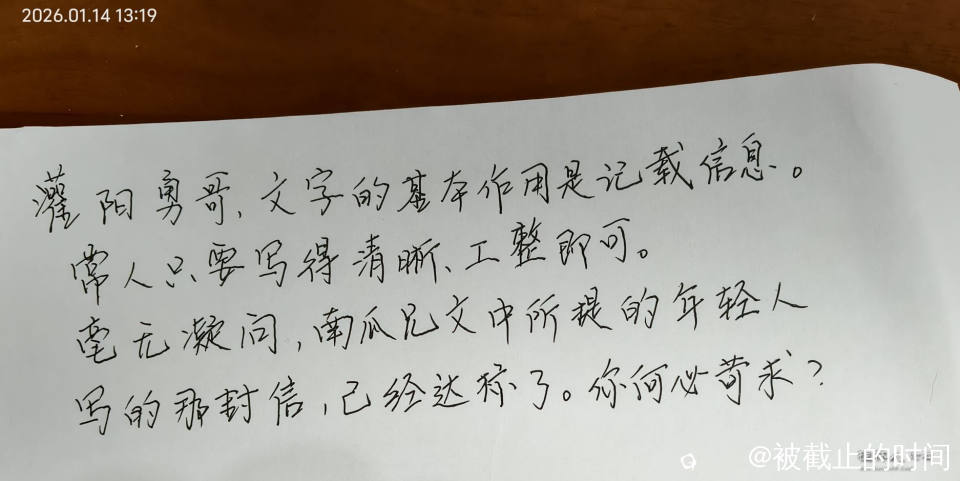 2026.01.14 13:19
灌阳勇哥、文字的基本作用是记载信息。
常人只要写得清晰、工整即可。
毫无凝问,南瓜兄文中所提的年轻人
写的那封信,已经达标了。你何必苛求?
@被截止的时间